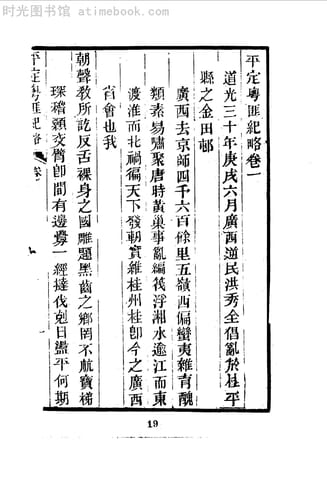 时光图书馆 atimebook.com
平定粵匪紀略卷一
道光三十年庚戌六月廣西逆民洪秀全倡亂於桂平
縣之金田邨
廣西去京師四千六百餘里五嶺西偏蠻夷雜育醜
類素易嘯聚唐時黃巢事亂編筏浮湘水逾江而東
渡淮而北禍徧天下發朝實維桂州桂卽今之廣西
省會也我
朝聲敎所訖反舌裸身之國雕題黑齒之鄉罔不航寶梯
琛稽顙交臂卽間有邊釁一經撻伐剋日盪平何期
平定粵匪紀略
卷一
一
19